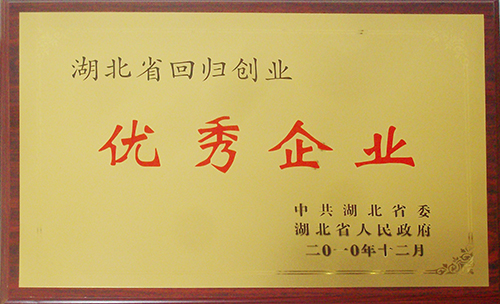 湖北省回归创业
优秀企业
中共湖北省委
湖北省人民政府
二0一0年十二月